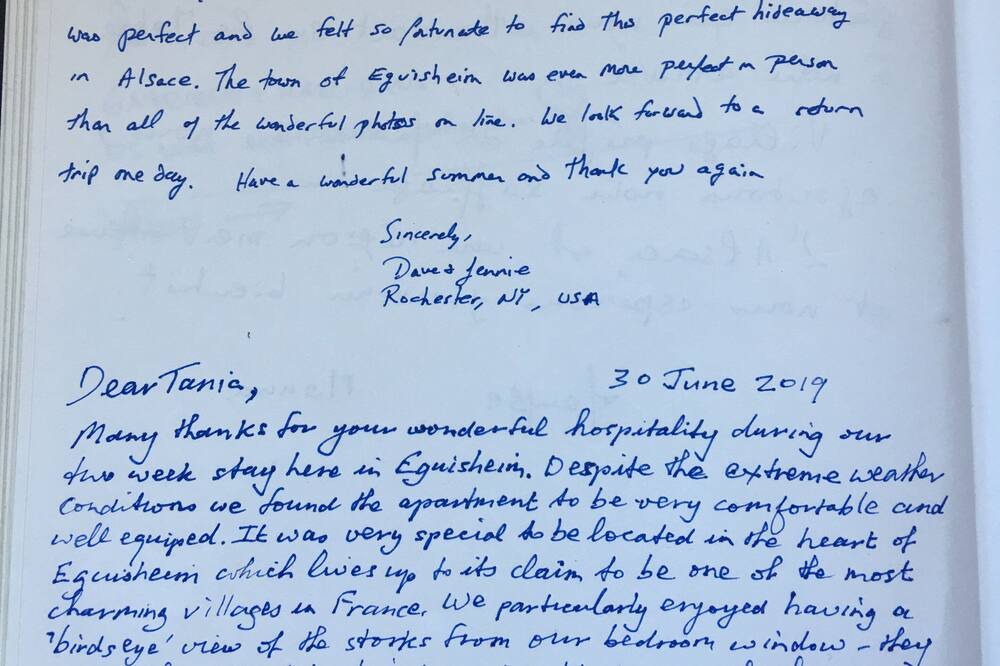 was perfect and we felt so fortunate to find this perfect hideaway
in Alsace. The town of Eguisheim was even more perfect in person
than all of the wonderful photos on line. We look forward to a return
trip one day. Have a wonderful summer and thank you again
Sincerely,
Dave & Jennie
Rochester, NY, USA
Dear Tania,
30 June 2019
Many thanks for your wonderful hospitality during our
two week stay here in Eguisheim. Despite the extreme weather
conditions we found the apartment to be very comfortable and
well equiped. It was very special to be located in the heart of
Eguisheim which lives up to its claim to be one of the most
charming villages in France. We particularly enjoyed having a
'birdseye' view of the storks from our bedroom window - they